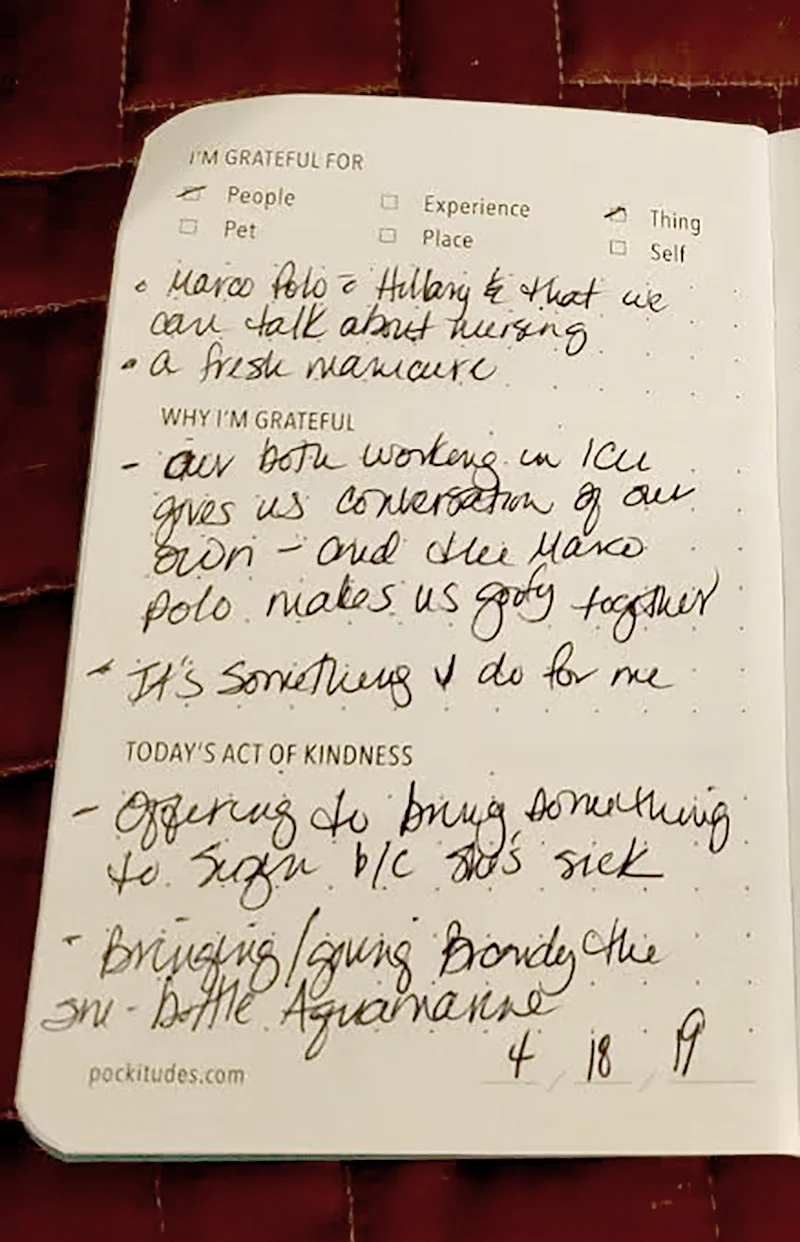 I'M GRATEFUL FOR
People Experience Thing
Pet Place Self
Marco Polo Hillary & that we
can talk about nursing
a fresh manicure
WHY I'M GRATEFUL
- our both working in ICU
gives us conversation of our
own - and the Marco
Polo makes us goofy together
- It's something I do for me
TODAY'S ACT OF KINDNESS
- Offering to bring something
to b/c she's sick
- Bringing/giving Brandy the
bottle Aquamarine
pockitudes.com 4 / 18 / 19